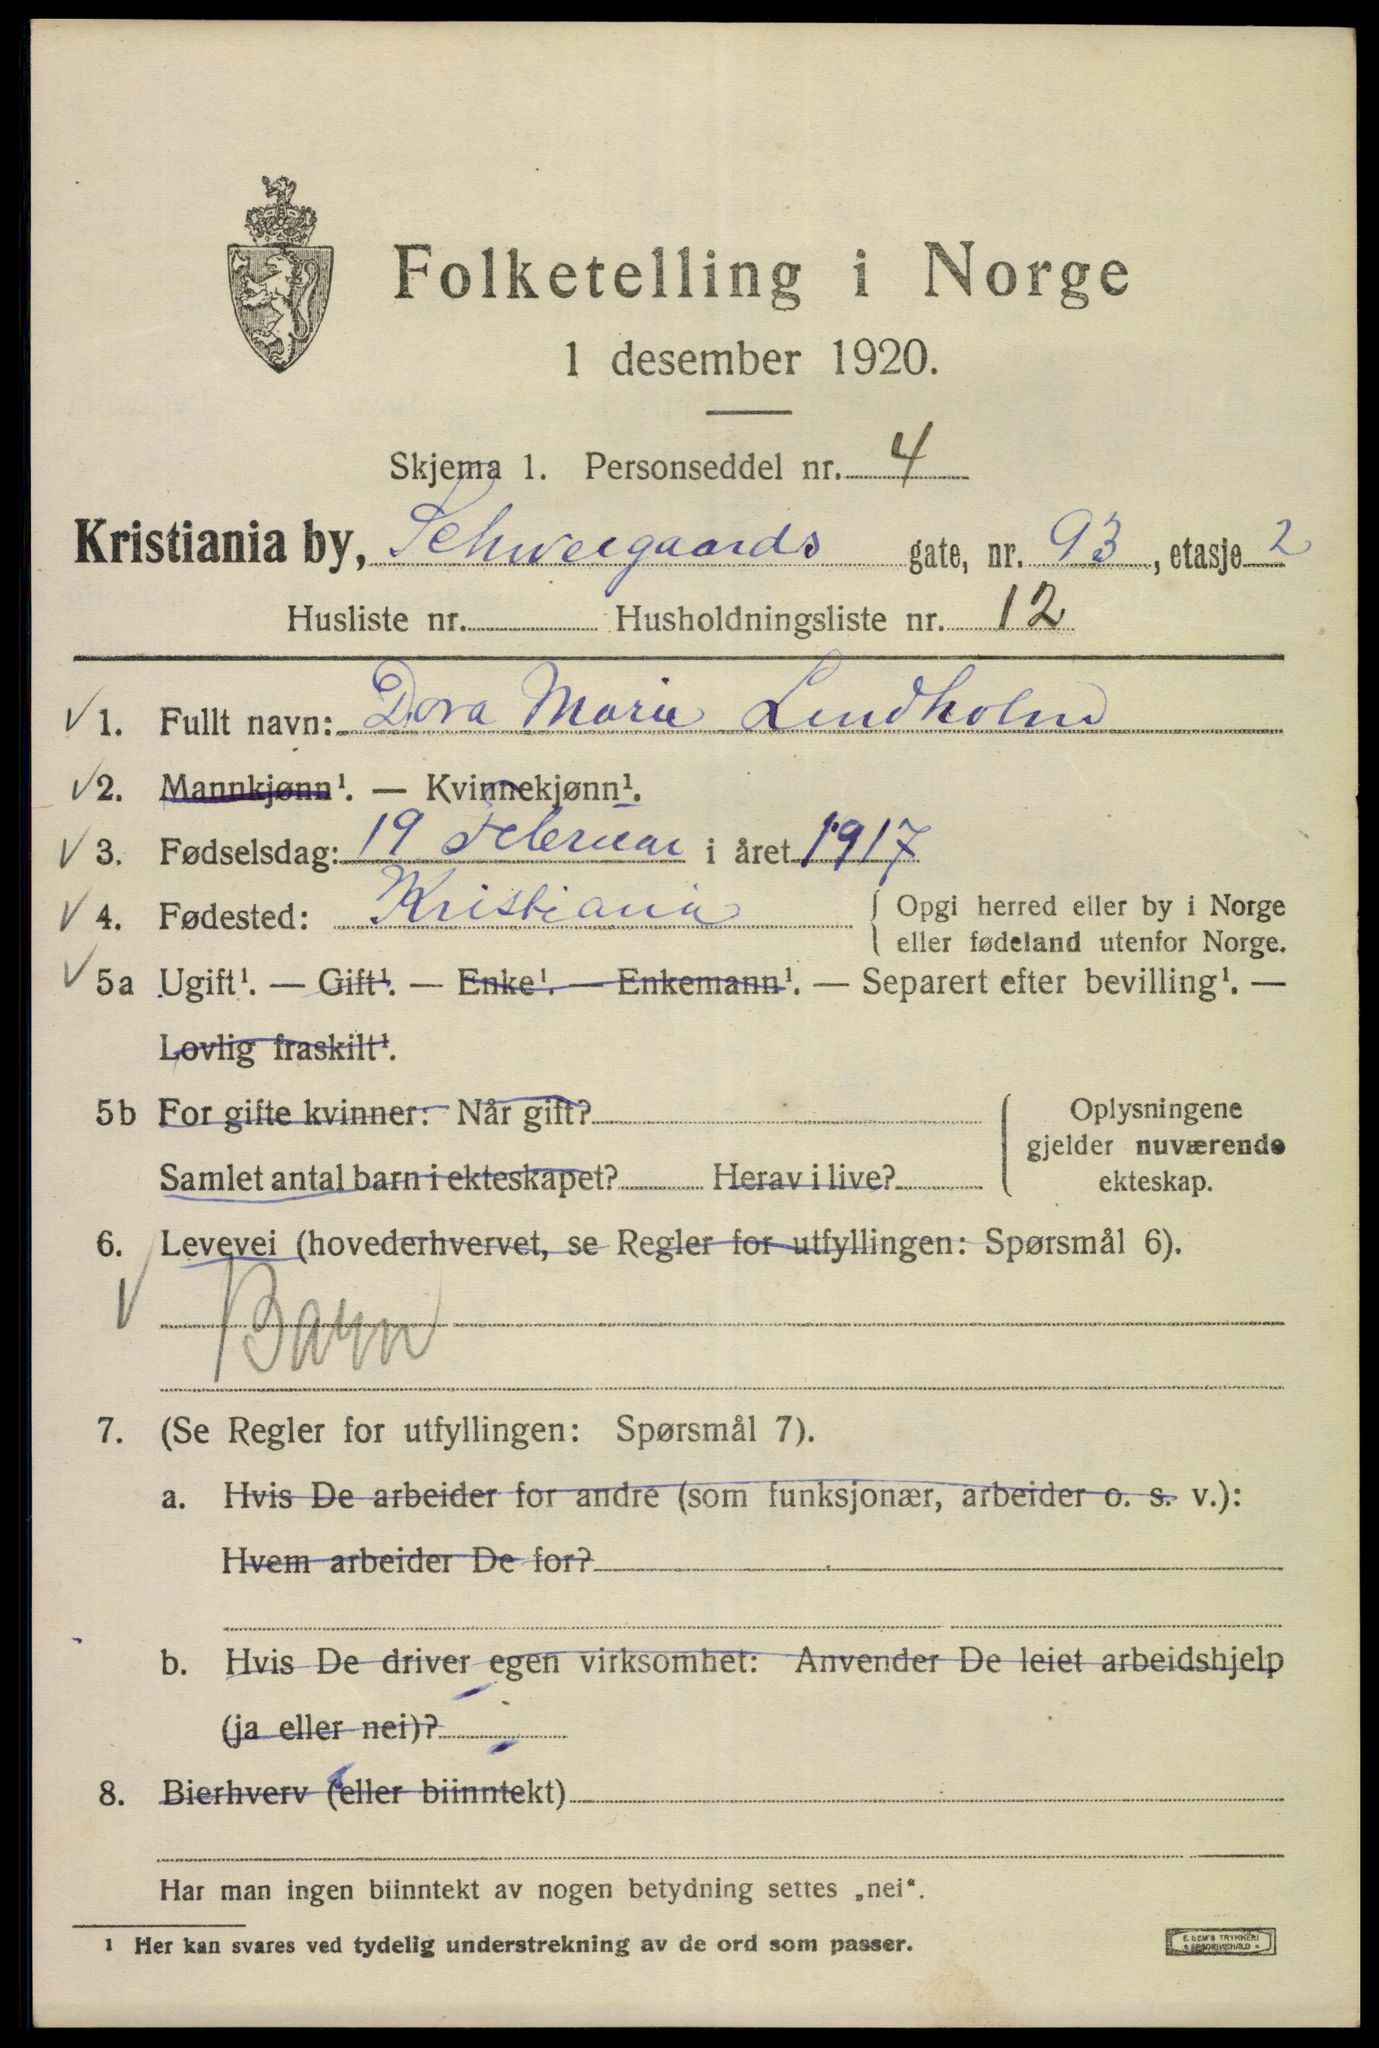 Folketelling i Norge
1 desember 1920.
Skjema 1. Personseddel nr. 4
Kristiania by, Schweigaards gate, nr. 93, etasje 2
Husliste nr. Husholdningsliste nr. 12
1. Fullt navn: Dora Marie Lindholm
2. Mannkjønn¹. — Kvinnekjønn¹.
3. Fødselsdag: 19 Februar i året 1917
4. Fødested: Kristiania { Opgi herred eller by i Norge
eller fødeland utenfor Norge.
5a Ugift¹. — Gift¹. — Enke¹. — Enkemann¹. — Separert efter bevilling¹. —
Lovlig fraskilt¹.
5b For gifte kvinner: Når gift? { Oplysningene
gjelder nuværende
Samlet antal barn i ekteskapet? Herav i live?
ekteskap.
6. Levevei (hovederhvervet, se Regler for utfyllingen: Spørsmål 6).
Barn
7. (Se Regler for utfyllingen: Spørsmål 7).
a. Hvis De arbeider for andre (som funksjonær, arbeider o. s. v.):
Hvem arbeider De for?
b. Hvis De driver egen virksomhet: Anvender De leiet arbeidshjelp
(ja eller nei)?
8. Bierhverv (eller biinntekt)
Har man ingen biinntekt av nogen betydning settes „nei“.
1 Her kan svares ved tydelig understrekning av de ord som passer.
E SEM'S TRYKKERI